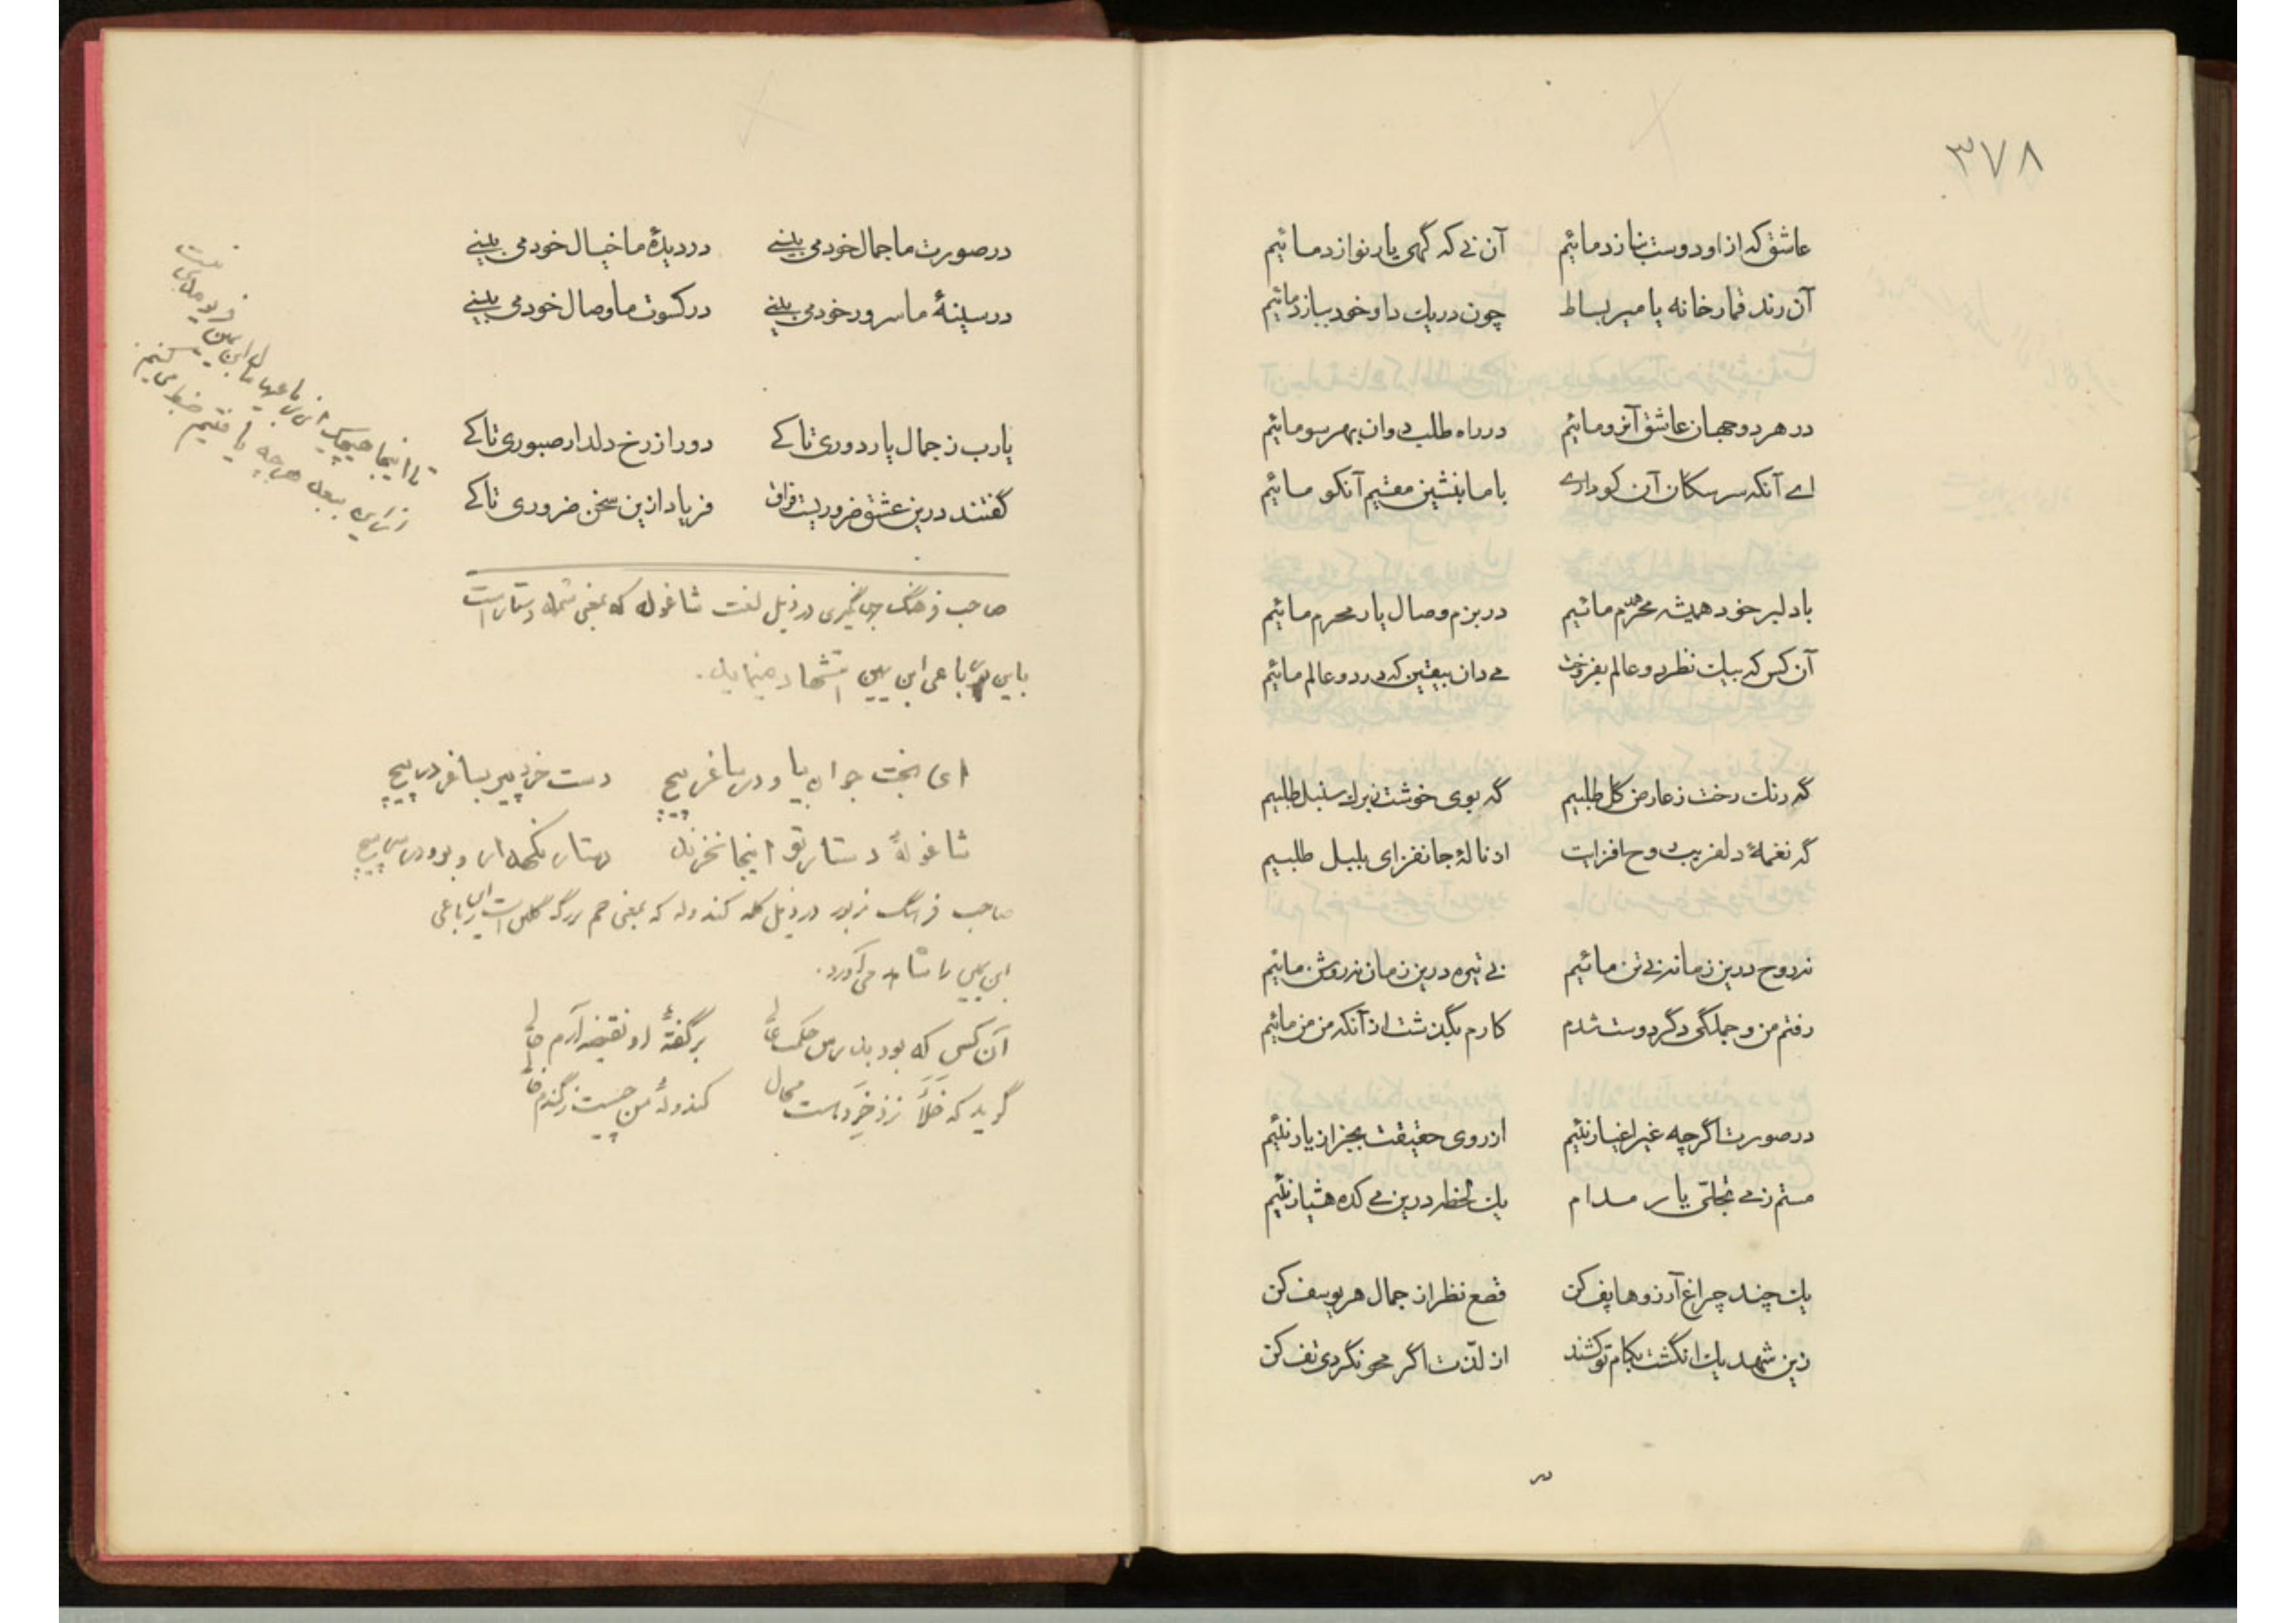 ۳۷۸
عاشق که از او دوست بنازد مائیم آن نی که گهی یار نوازد مائیم
آن رند قمارخانه پا میر بساط چون در یک داو خود ببازد مائیم
در هر دو جهان عاشق آنرو مائیم در راه طلب دوان بهر سو مائیم
اے آنکه سر سکان آن کو داری با ما بنشین مقیم آنکو مائیم
با دلبر خود همیشه همدم مائیم در بزم وصال یار محرم مائیم
آن کس که بیک نظر دو عالم بفروخت می دان بیقین که در دو عالم مائیم
گه رنگ رخت ز عارض گل طلبیم گه بوی خوشت ز برک سنبل طلبیم
گه نغمهٔ دلفریب روح افزایت از نالهٔ جانفزای بلبل طلبیم
نه روح درین زمانه نی تن مائیم نی تیره درین زمان نه روشن مائیم
رفتم من و جملگی دگر دوست شدم کارم بگذشت از آنکه من من مائیم
در صورت اگرچه غیر اغیار نئیم از روی حقیقت بجز از یار نئیم
مستم ز می تجلّی یار مدام یک لحظه درین می کده هشیار نئیم
یک چند چراغ آرزوها پف کن قطع نظر از جمال هر یوسف کن
زین شهد یک انگشت بکام تو کشند از لذّت اگر محو نگردی تف کن
در
در صورت ما جمال خود می بینی در دیدهٔ ما خیال خود می بینی
در سینهٔ ما سرور خود می بینی در کسوت ما وصال خود می بینی
یارب ز جمال یار دوری تا کے دور از رخ دلدار صبوری تا کے
گفتند درین عشق ضروریست فراق فریاد ازین سخن ضروری تا کے
تا اینجا هیچیک از رباعیها مال ابن یمین فریومدی نیست
از این ببعد هرچه یافتیم ضبط می کنیم
صاحب فرهنگ جهانگیری در ذیل لغت شاغوله که بمعنی شمله دستار است
باین رباعی ابن یمین استشهاد مینماید.
ای بخت جوان بیا و در ساغر پیچ دست خرد پیر بساغر در پیچ
شاغولهٔ دستار تو اینجا نخرند دستار نگهدار و برو در سر پیچ
صاحب فرهنگ مزبور در ذیل کلمه کندوله که بمعنی خم بزرگ گلی است این رباعی
ابن یمین را شاهد می آورد.
آن کس که بود بدرس حکمت عالی بر گفتهٔ او نقیضه آرم حالی
گوید که خَلَأ نزد خِرَد است محال کندولهٔ من چیست ز گندم خالی